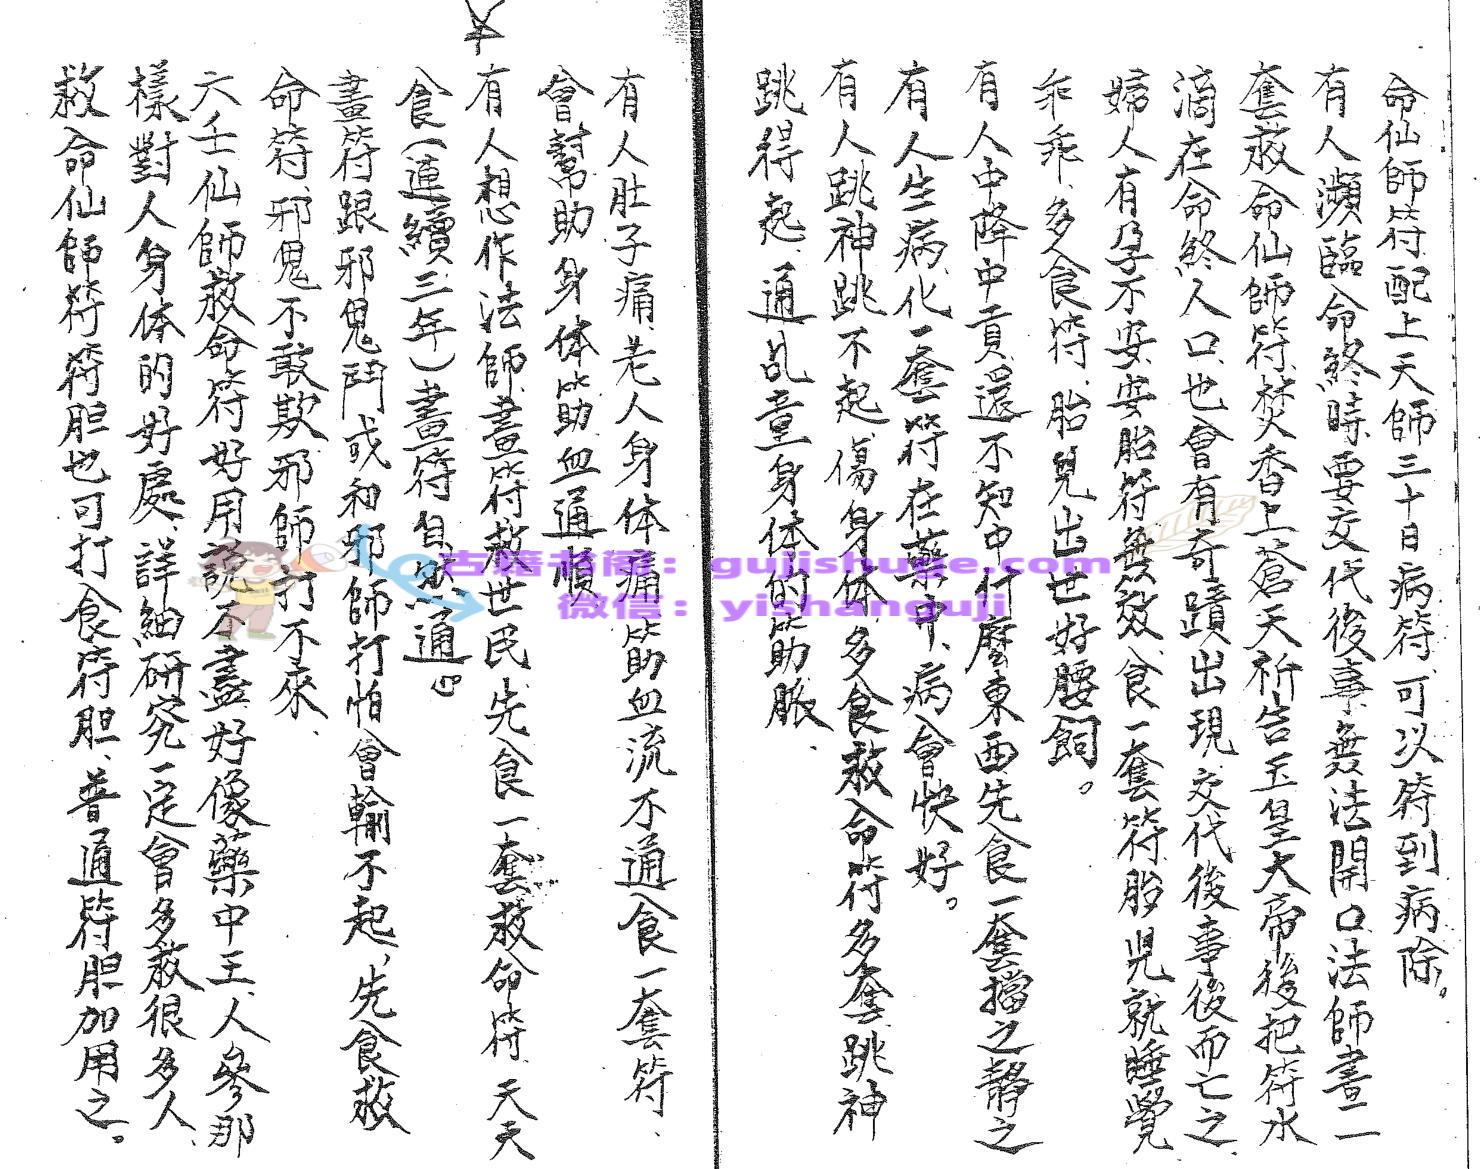 命仙師符配上天師三十日病符、可以符到病除。
有人瀕臨命終時、要交代後事、無法開口法師畫二
套救命仙師符、焚香上蒼天祈告玉皇大帝後把符水
滴在命終人口、也會有奇蹟出現、交代後事後而亡之、
婦人有孕不安、安胎符無效、食一套符、胎兒就睡覺
乖乖、多食符、胎兒出世好腰飼。
有人中降中貢、還不知中什麼東西、先食一套擋之靜之
有人生病、化一套符在藥中、病會快好。
有人跳神跳不起、傷身体、多食救命符多套跳神
跳得起、通乩童身体的筋助脈、
有人肚子痛、老人身体痛、筋血流不通食一套符、
會幫助身体筋血通順
有人想作法師、畫符救世民、先食一套救命符、天天
食(連續三年)畫符自然通心
畫符跟邪鬼鬥或和邪師打怕會輸不起、先食救
命符、邪鬼不敢欺邪師打不來、
六壬仙師救命符好用說不盡好像藥中王、人參那
樣對人身体的好處、詳細研究一定會多救很多人、
救命仙師符符胆也可打食符胆、普通符胆加用之。
古籍书阁：gujishuge.com
微信：yishanguji